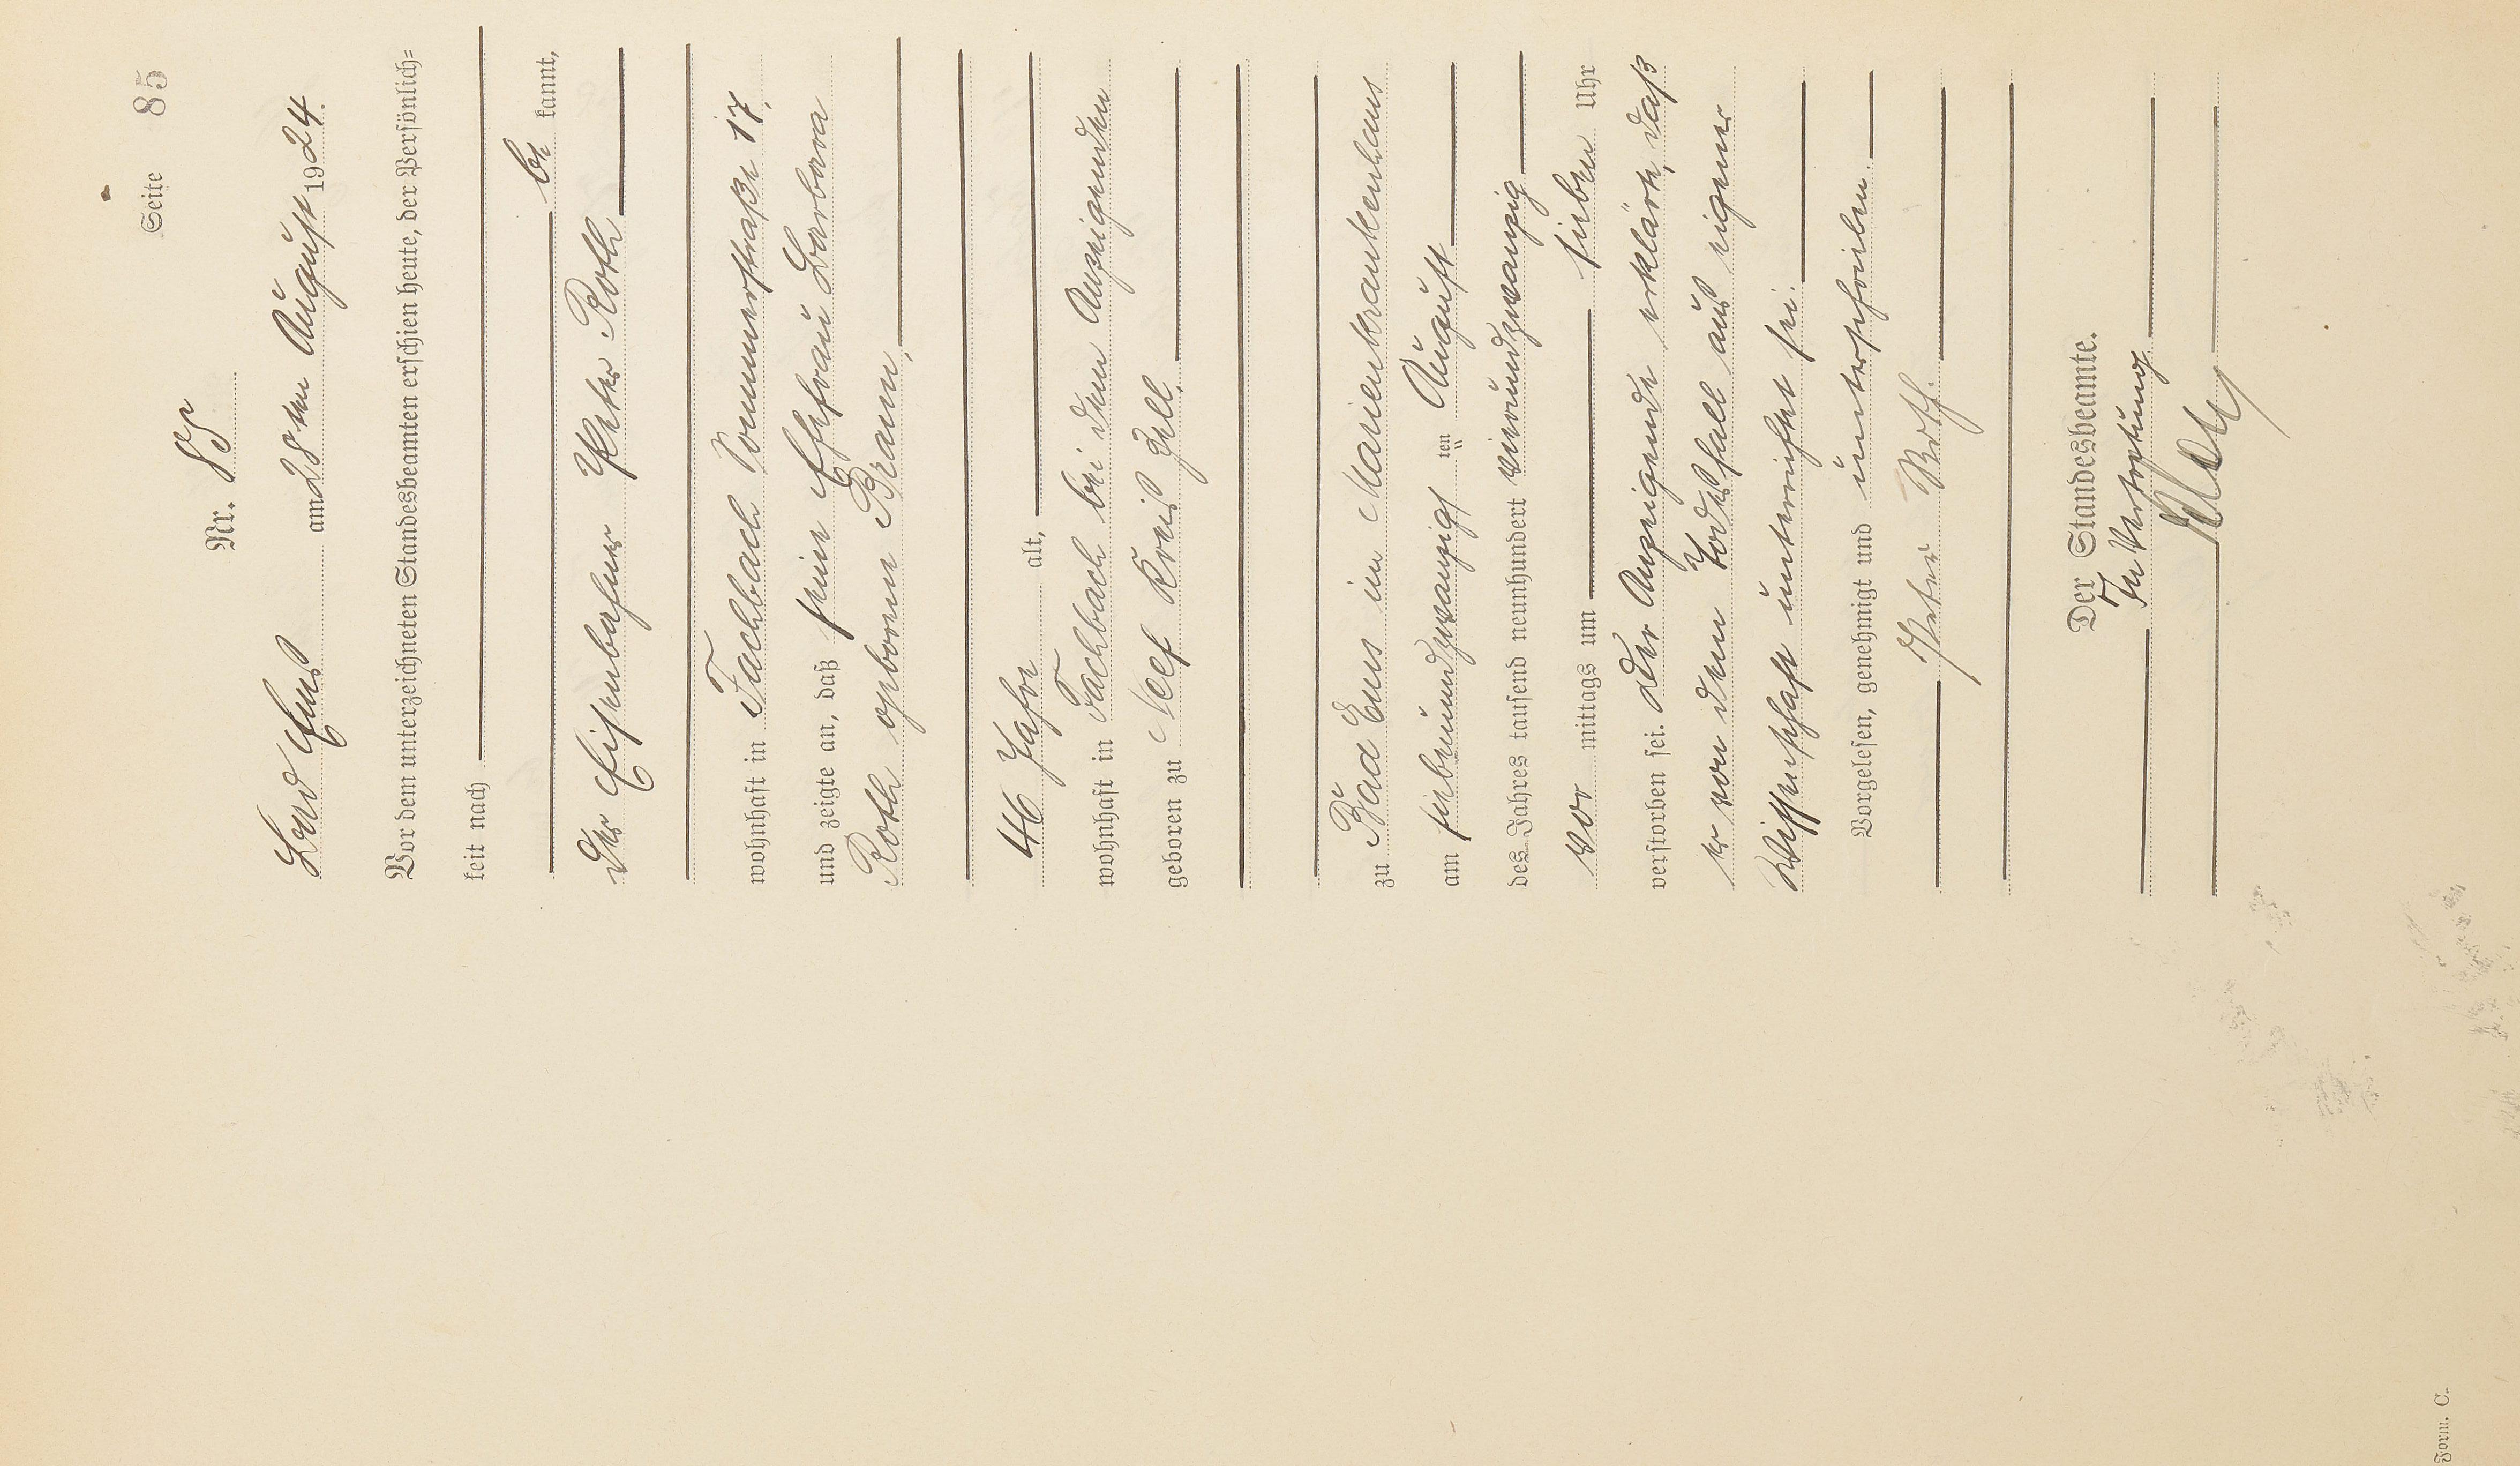 Seite 85
Nr. 85
Bad Ems am 28ten August 1924.
Vor dem unterzeichneten Standesbeamten erschien heute, der Persönlich=
keit nach
be kannt,
der Eisenbahner Peter Roth
wohnhaft in Fachbach Sommerstraße 17,
und zeigte an, daß seine Ehefrau Barbara
Roth geborene Bramm,
46 Jahre alt,
wohnhaft in Fachbach bei dem Anzeigenden
geboren zu Neef Kreis Zell,
zu Bad Ems im Marienkrankenhaus
am siebenundzwanzigs ten August
des Jahres tausend neunhundert vierundzwanzig
vor mittags um sieben Uhr
verstorben sei. Der Anzeigende erklärte, daß
er von dem Todesfall aus eigener
Wissenschaft unterrichtet sei.
Vorgelesen, genehmigt und unterschrieben
Peter Roth.
Der Standesbeamte.
In Vertretung
Form. C.